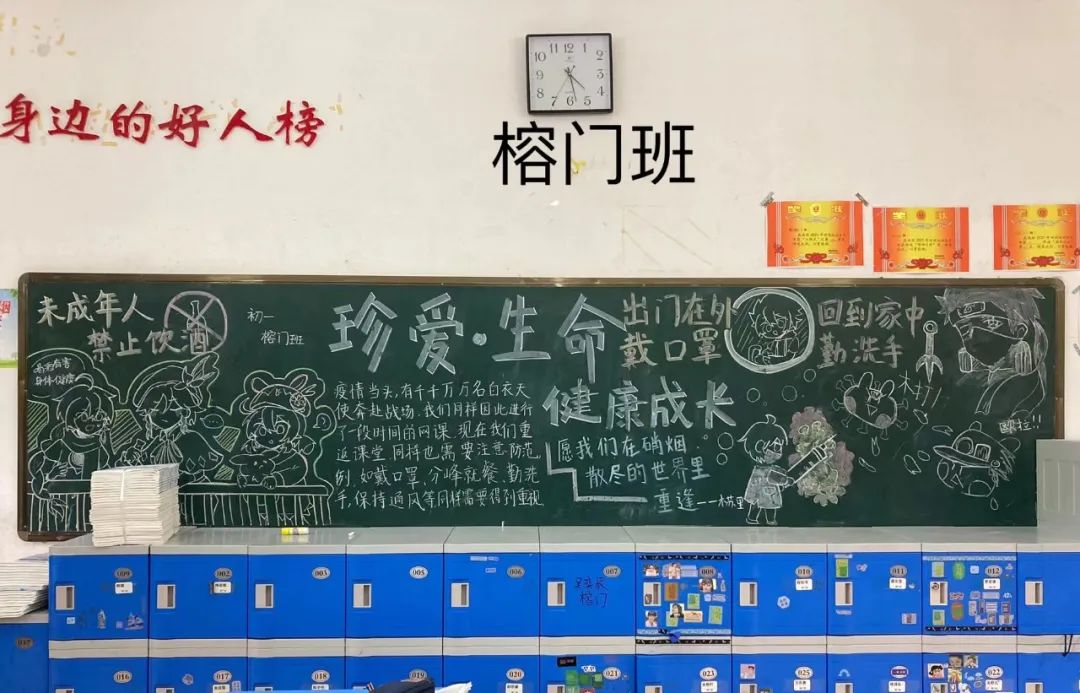 身边的好人榜
榕门班
未成年人
禁止饮酒
初一
榕门班
珍爱·生命
健康成长
出门在外
戴口罩
回到家中
勤洗手
疫情当头,有千千万万名白衣天
使奔赴战场,我们同样因此进行
了一段时间的网课,现在我们重
返课堂,同样也需要注意防范,
例,如戴口罩,分峰就餐,勤洗
手,保持通风等同样需要得到重视
愿我们在硝烟
散尽的世界里
重逢
欧拉!!
12
11
1
10
2
9
3
8
4
7
6
5
009
002
003
005
006
007
008
010
011
012
榕门
016
017
018
019
020
021
023
025
022